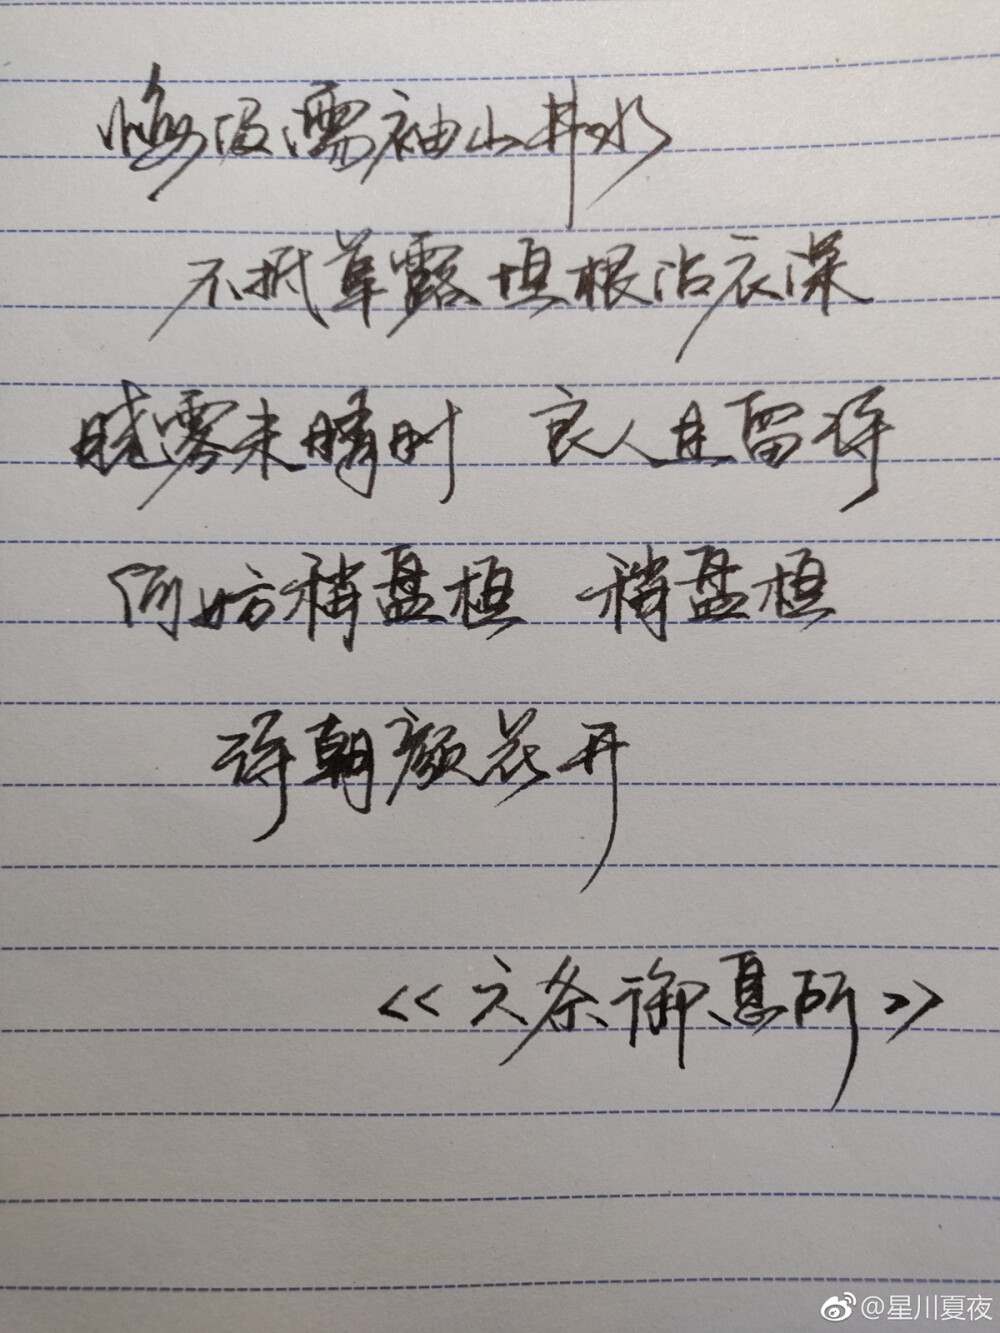 悔汲濡袖山井水
不抵草露填根沾衣深
晓雾未晴时 良人且留许
何妨稍盘桓 稍盘桓
许朝颜花开
<<六条御息所>>
@星川夏夜